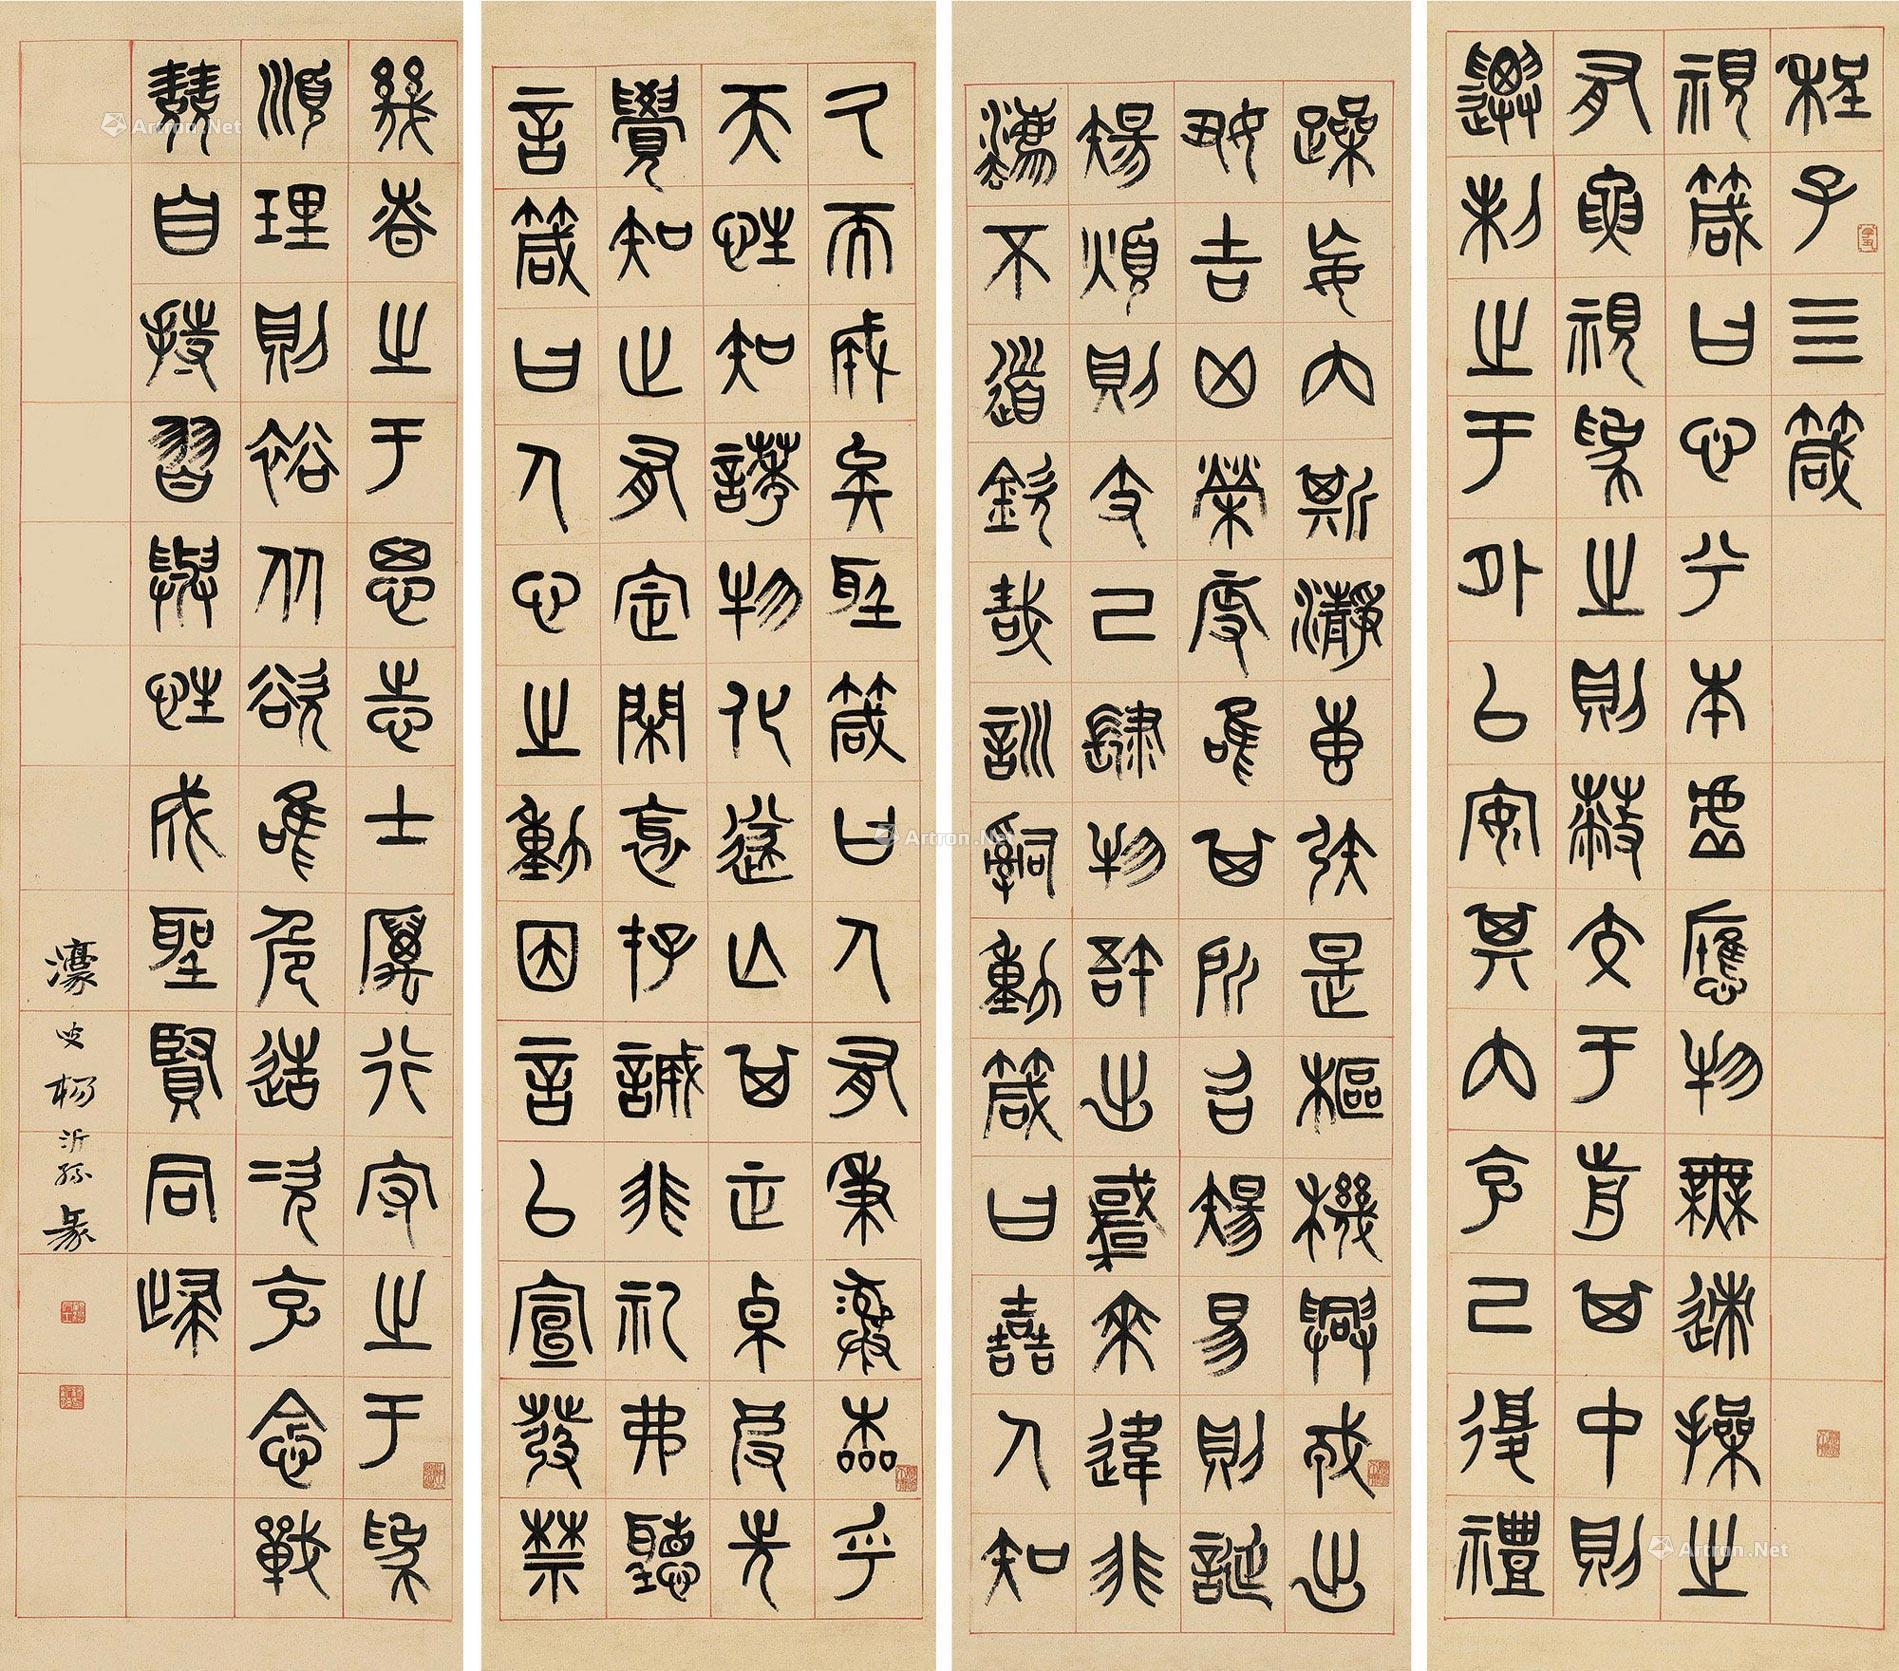 程子亖箴
視箴曰心兮本虛應物無迹操之
有要視為之則蔽交于前其中則
遷制之于外以安其內克己復禮
久而誠矣聽箴曰人有秉彝本乎
天性知誘物化遂亡其正卓彼先
覺知止有定閑邪存誠非禮弗聽
言箴曰人心之動因言以宣發禁
躁妄內斯靜專矧是樞機興戎出
好吉凶榮辱惟其所召傷易則誕
傷煩則支己肆物忤出悖來違非
灋不道欽哉訓辭動箴曰嚞人知
幾誠之于思志士厲行守之于為
順理則裕从欲惟危造次克念戰
兢自持習與性成聖賢同歸
濠叟楊沂孫篆
Artron.Net
Artron.Net
Artron.Net